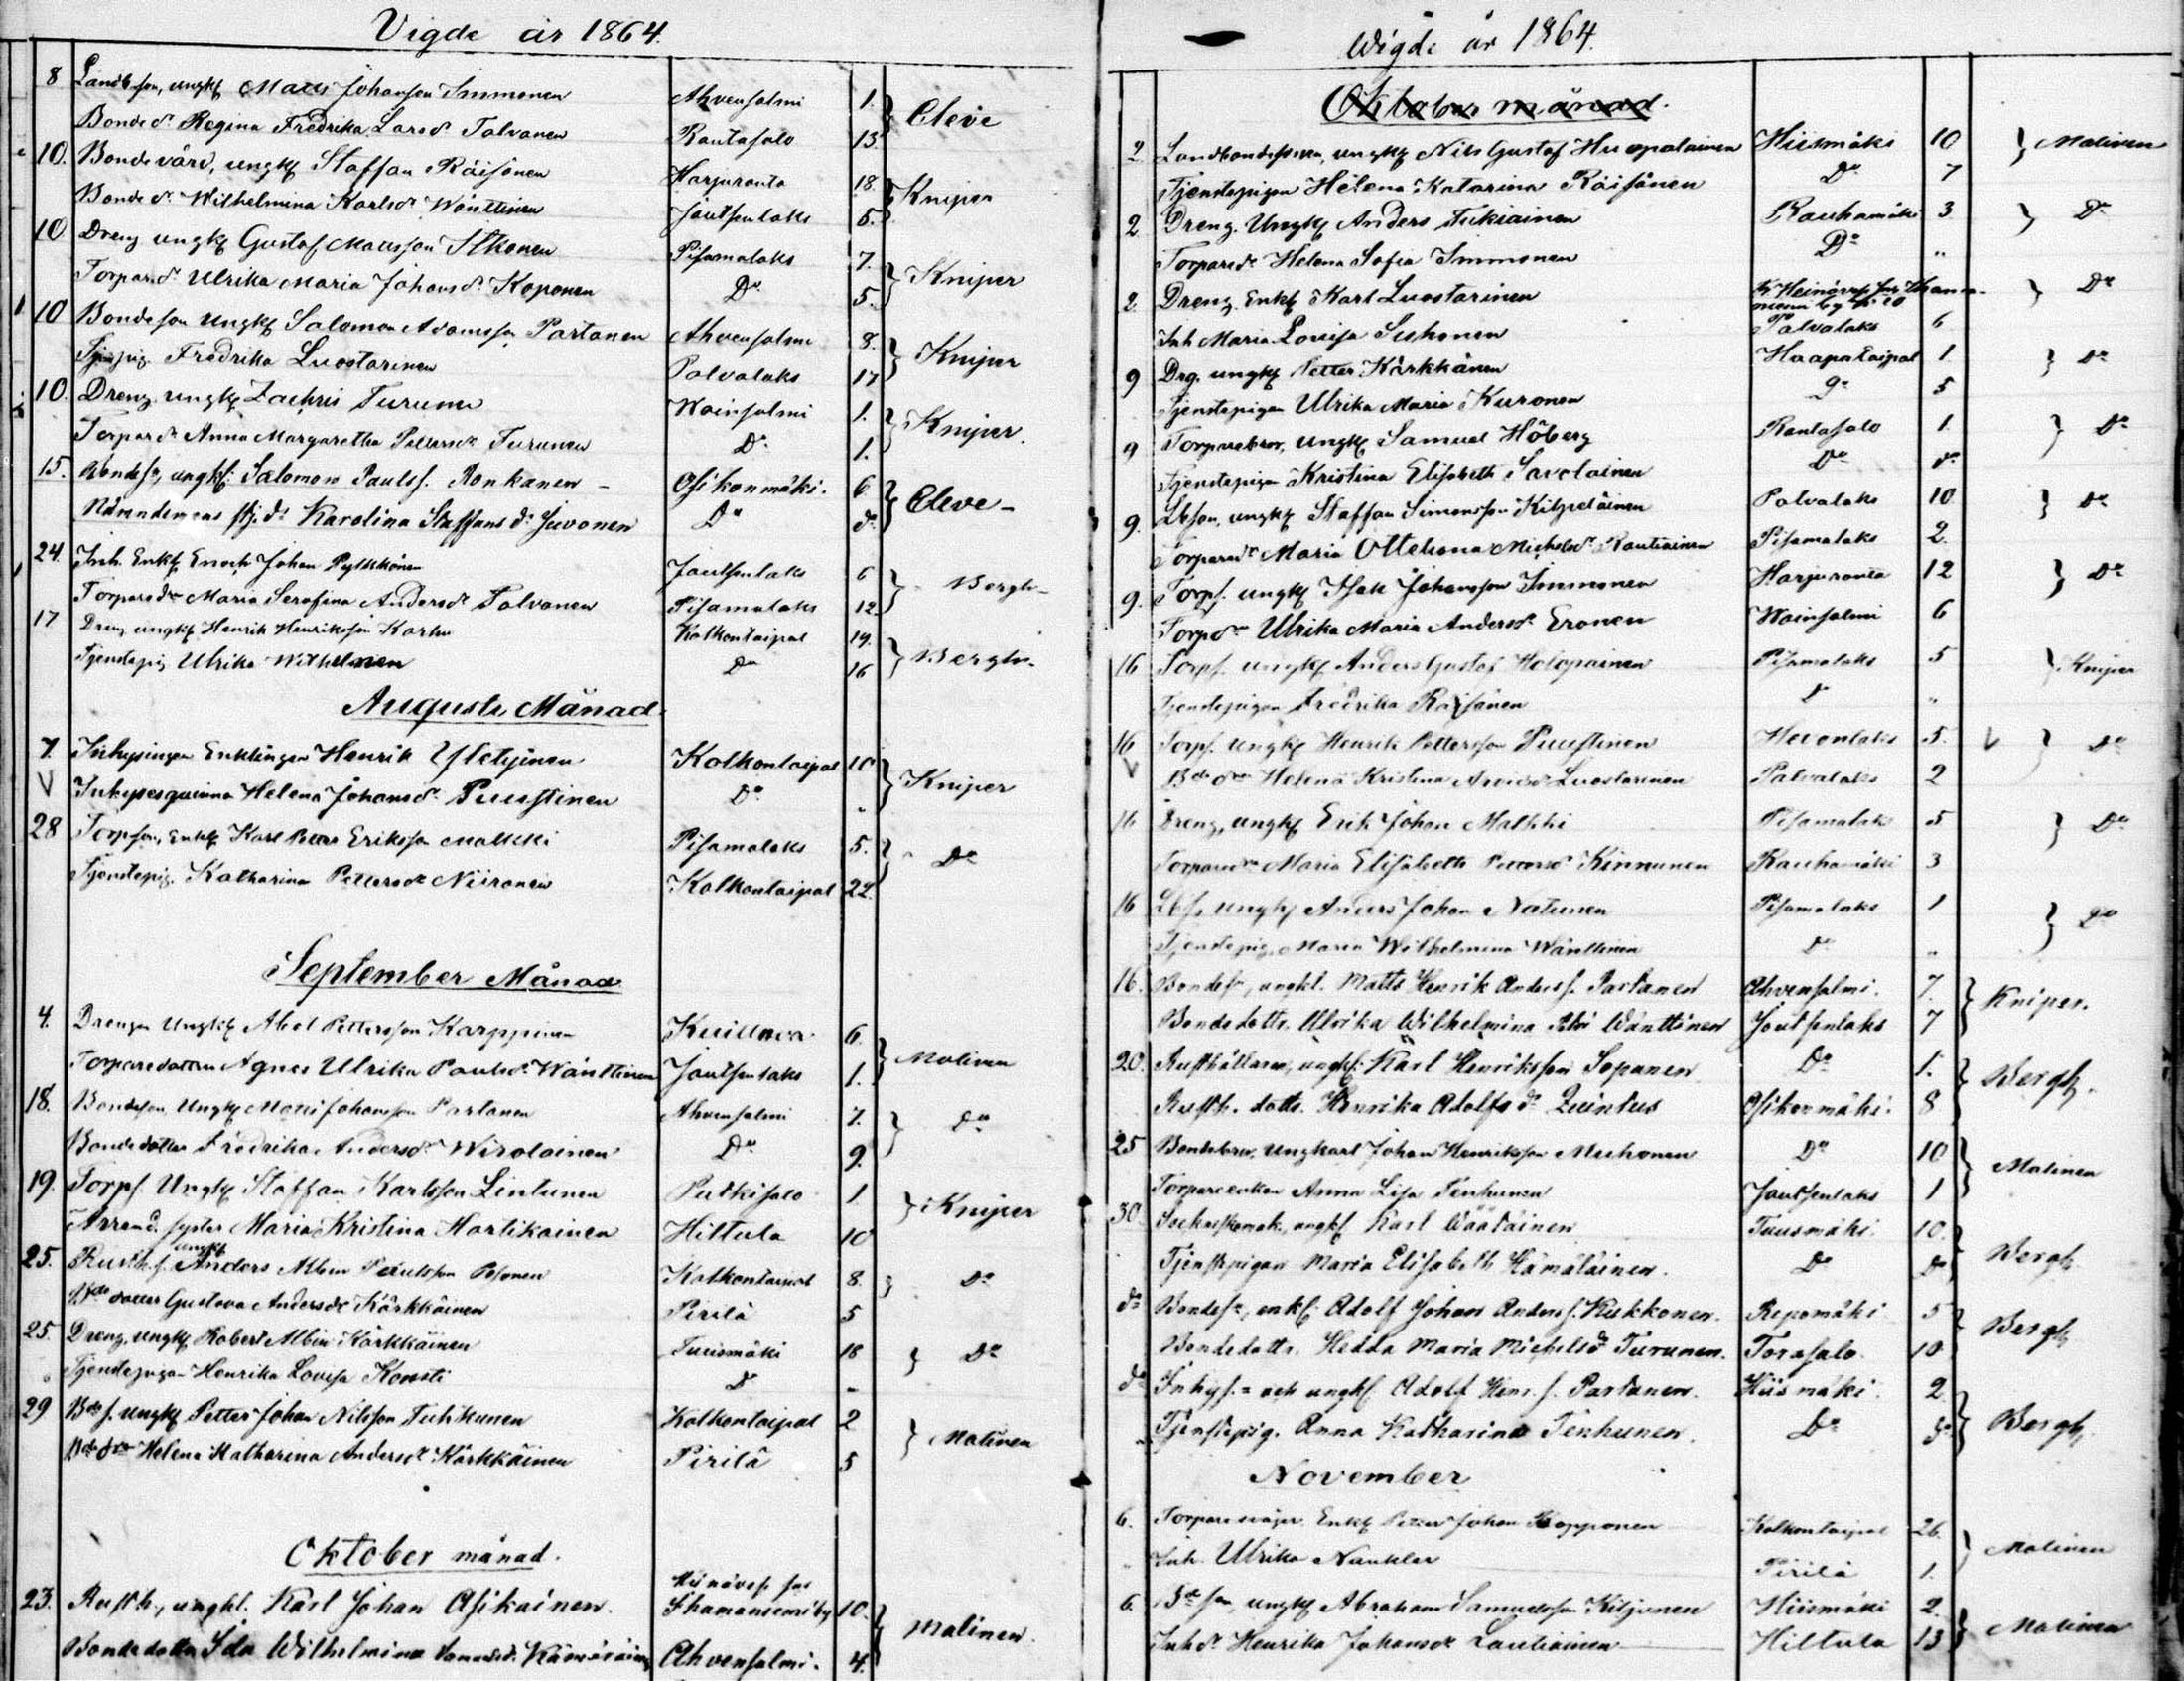 Vigde år 1864.
8 Landb.son, ungk Matts Johansson Immonen Ahvensalmi 1. } Cleve
Bonded. Regina Fredrika Larsd. Talvanen Rantasalo 13
10. Bonde våre, ungk Staffan Räisänen Harjuranta 18. } Kniper
Bonded. Wilhelmina Karlsd. Wänttinen Joutsenlaks 5.
10 Dreng ungk Gustaf Matsson Itkonen Pisamalaks 7. } Kniper
Torpared. Ulrika Maria Johansd. Koponen Do 5.
10 Bondeson ungk Salomon Adamsson Partanen Ahvensalmi 8. } Kniper
Tjenstpig. Fredrika Luostarinen Palvalaks 17
10. Dreng ungk Zachris Turunen Wainsalmi 1. } Kniper.
Torpared. Anna Margaretha Pettersd. Turunen Do 1.
15. Bondesn, ungk. Salomon Paulss. Ronkanen Osikonmäki. 6. } Cleve
stj.dr Karolina Staffans dr Juvonen Do do
24. Inh. Enkl Enoch Johan Pylkkönen Joutsenlaks 6 } Bergh
Torparedr Maria Serafina Andersd. Talvanen Pisamalaks 12
17 Dreng ungk Henrik Henriksson Karhu Kolkontaipal 19. } Bergh
Tjenstepig Ulrika Wilhelmsen Do 16
Augusti Månad.
7. Inhysingen Enklingen Henrik Yletyinen Kolkontaipal 10 } Kniper
V Inhysesqvinna Helena Johansd. Puustinen Do "
28 Torpson, Enkl Karl Petter Eriksson Malkki Pisamalaks 5. } Do
Tjenstepig. Katharina Pettersdr Niiranen Kolkontaipal 22.
September Månad
4. Drengen Ungk Abel Pettersson Karppinen 6. } Malinen
Torparedottren Agnes Ulrika Paulsd. Wänttinen Joutsenlaks 1.
18. Bondeson, Ungk Matts Johansson Partanen Ahvensalmi 7. } Do
Bondedotter Fredrika Andersdr Wirolainen Do 9.
19. Torps. Ungk Staffan Karlsson Lintunen Putkisalo 1. } Kniper
Arrend. syster Maria Kristina Hartikainen Hiltula 10
25. Rusth.s. ungk Anders Albin Paulsson Pesonen Kolkontaipal 8. } Do
Bde dotter Gustava Andersdr Kärkkäinen Pirilä 5
25. Dreng, ungk Robert Albin Kärkkäinen Tuusmäki 18 } Do
Tjenstepigan Henrika Lovisa Konsti Do "
29 Bdes. ungk Petter Johan Nilsson Tuhkunen Kolkontaipal 2 } Malinen
Bdedtr Helena Katharina Andersdr Kärkkäinen Pirilä 5
Oktober månad.
23. Rusth., ungkl. Karl Johan Asikainen. 10. } Malinen.
Bondedotter Ida Wilhelmina Ahvensalmi. 4.
Wigde år 1864.
Oktober månad.
2 Landbondesson, ungk Nils Gustaf Huopalainen Hiismäki 10 } Malinen
Tjenstepigan Helena Katarina Räisänen Do 7
2 Dreng. Ungk Anders Tukiainen Rauhamäki 3 } Do
Torparedr Helena Sofia Immonen Do "
2. Dreng. Enkl Karl Luostarinen } Do
Inh Maria Lovisa Suhonen Palvalaks 6
9 Drg. ungk Petter Kärkkänen Haapataipal 1 } Do
Tjenstepigan Ulrika Maria Kuronen Do 5
9 Torparebror, ungk Samuel Höberg Rantasalo 1. } Do
Tjenstepigan Kristina Elisabeth Savolainen Do do
9. Lbson, ungk Staffan Simonsson Kilpeläinen Palvalaks 10 } Do
Torparedr Maria Otteliana Michelsdr Rautiainen Pisamalaks 2.
9. Torps. ungk Isak Johansson Immonen Harjuranta 12 } Do
Torpdr Ulrika Maria Andersdr Eronen Wainsalmi 6
16 Torps. ungk Anders Gustaf Holopainen Pisamalaks 5 } Kniper
Tjenstepigan Fredrika Räisänen Do "
16 Torps. ungk Henrik Pettersson Puustinen Hevonlaks 5. V } Do
V Bdedtr Helena Kristina Luostarinen Palvalaks 2
16 Dreng, ungk Erik Johan Malkki Pisamalaks 5 } Do
Torparedtr Maria Elisabeth Pettersdr Kinnunen Rauhamäki 3
16 Lbs. ungk Anders Johan Natunen Pisamalaks 1 } Do
Tjenstepig. Maria Wilhelmina Wänttinen Do "
16. Bondesn, ungkl. Matts Henrik Anderss. Partanen Ahvensalmi. 7. } Kniper.
Bondedottr. Ulrika Wilhelmina Wänttinen Joutsenlaks 7
20. Rusthållaren, ungk. Karl Henriksson Sopanen Do 1. } Bergh.
Rusth. dottr. Henrika Adolfs dr Quintus Osikonmäki. 8
25 Bondebror, Ungkarl Johan Henriksson Muhonen Do 10 } Malinen
Torpareenkan Anna Lisa Tenhunen Joutsenlaks 1
30. Sockneskomak. ungk Karl Wäätäinen Tuusmäki 10. } Bergh
Tjenstepigan Maria Elisabeth Hämäläinen. Do Do
do Bondesn, enkl. Adolf Johan Anderss. Kukkonen. Repomäki 5 } Bergh
Bondedottr. Hedda Maria Michelsdr Turunen. Torasalo. 10
do Inhys.= och ungk. Adolf Henr. s. Partanen. Hiismäki. 2 } Bergh
Tjenstepig. Anna Katharina Tenhunen. Do do
November
6. Torparemåger Enkl Petter Johan Kapponen Kolkontaipal 26. } Malinen
Inh. Ulrika Naukler Pirilä 1.
6. Bdeson, ungk Abraham Samuelsson Kiljunen Hiismäki 2. } Malinen
Inhdr Henrika Johansdr Lautiainen Hiltula 13